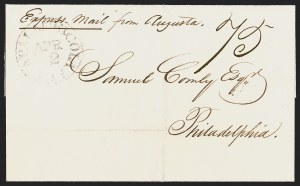 Express Mail from Augusta.
75
Samuel Comly Esqr.
Philadelphia.